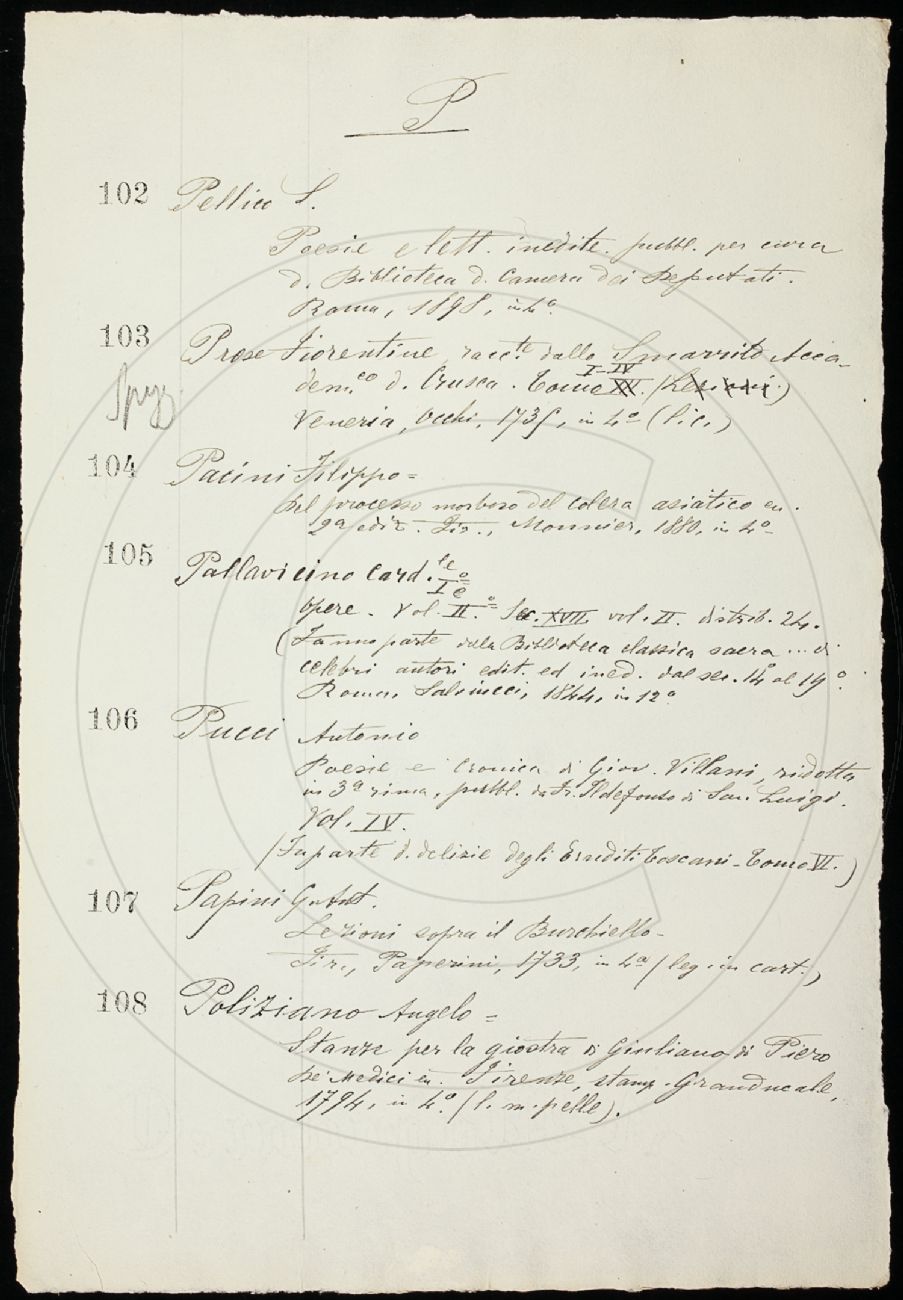 P
102 Pellico S.
Poesie e lett. inedite pubbl. per cura
d. Biblioteca d. Camera dei Deputati.
Roma, 1898, in 4º.
103 Prose Fiorentine, racc.te dallo Smarrito Acca-
dem.co d. Crusca. Tomo XV. I-IV
Venezia, Occhi, 1735, in 4º (lic.)
104 Pacini Filippo =
Del processo morboso del colera asiatico
2ª ediz. Fir., Monnier, 1880, in 4º
105 Pallavicino Card.le
Opere. Vol. Iº e IIº Sec. XVII vol. II. distrib. 24.
(Fanno parte della Biblioteca classica sacra ... di
celebri autori edit. ed ined. dal sec. 14º al 19º.
Roma, Salviucci, 1844, in 12º
106 Pucci Antonio
Poesie e Cronica di Giov. Villani, ridotta
in 3ª rima, pubbl. da Fr. Ildefonso di San Luigi.
Vol. IV.
(Fa parte d. delizie degli Eruditi Toscani - Tomo VI.)
107 Papini G. Ant.
Lezioni sopra il Burchiello -
Fir., Paperini, 1733, in 4º (leg. in cart.)
108 Poliziano Angelo =
Stanze per la giostra di Giuliano di Piero
de' Medici Firenze, stamp. Granducale,
1794, in 4º. (l. m. pelle).